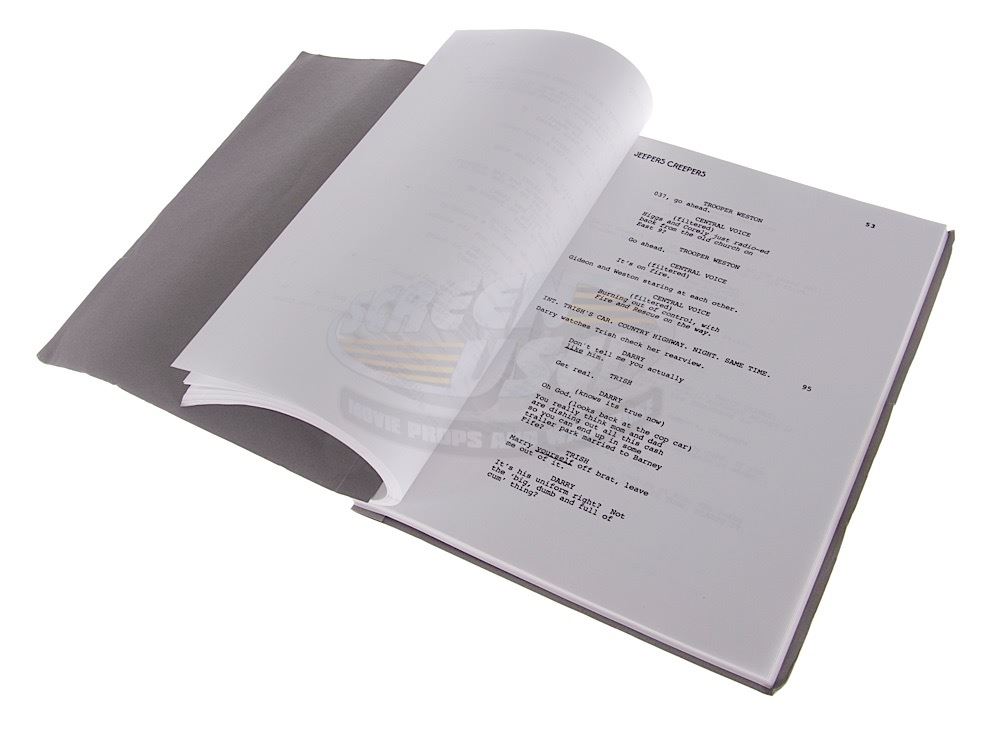 JEEPERS CREEPERS
53
TROOPER WESTON
037, go ahead.
CENTRAL VOICE
(filtered)
Higgs and Corely just radio-ed
back from the old church on
East 9?
TROOPER WESTON
Go ahead.
CENTRAL VOICE
(filtered)
It's on fire.
Gideon and Weston staring at each other.
CENTRAL VOICE
(filtered)
Burning out of control, with
Fire and Rescue on the way.
INT. TRISH'S CAR. COUNTRY HIGHWAY. NIGHT. SAME TIME.
95
Darry watches Trish check her rearview.
DARRY
Don't tell me you actually
like him.
TRISH
Get real.
DARRY
(knows its true now)
Oh God.
(looks back at the cop car)
You really think mom and dad
are dishing out all this cash
so you can end up in some
trailer park married to Barney
Fife?
TRISH
Marry yourself off brat, leave
me out of it.
DARRY
It's his uniform right? Not
the 'big, dumb and full of
cum' thing?
SCREEN
USED
MOVIE PROPS AND